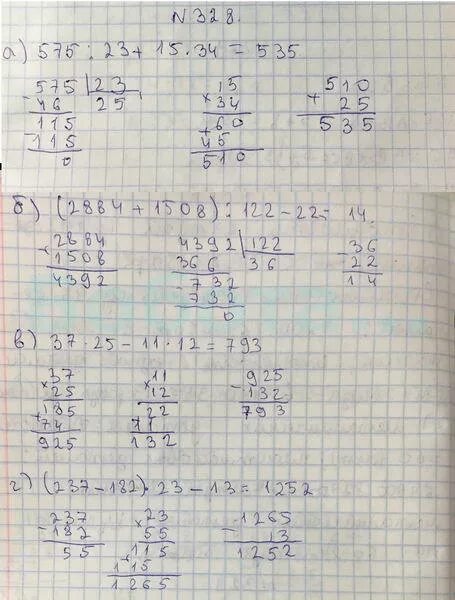 N 328.
а) 575 : 23 + 15 · 34 = 535
575 23
- 46 25
115
- 115
0
15
× 34
60
+ 45
510
510
+ 25
535
б) (2884 + 1508) : 122 - 22 = 14.
2884
+ 1508
4392
4392 122
366 36
- 732
732
0
- 36
22
14
в) 37 · 25 - 11 · 12 = 793
37
× 25
185
+ 74
925
11
× 12
22
11
132
- 925
132
793
г) (237 - 182) · 23 - 13 = 1252
- 237
182
55
23
× 55
115
+ 115
1265
- 1265
13
1252